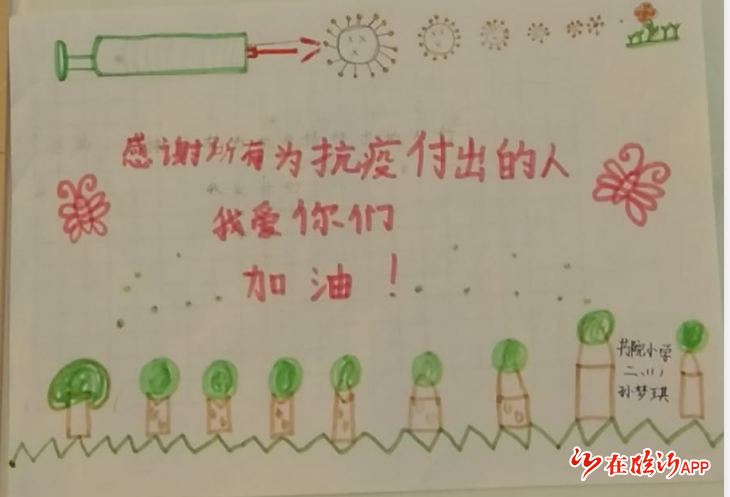 感谢所有为抗疫付出的人
我爱你们
加油！
书院小学
二、(1)
孙梦琪
在临沂APP